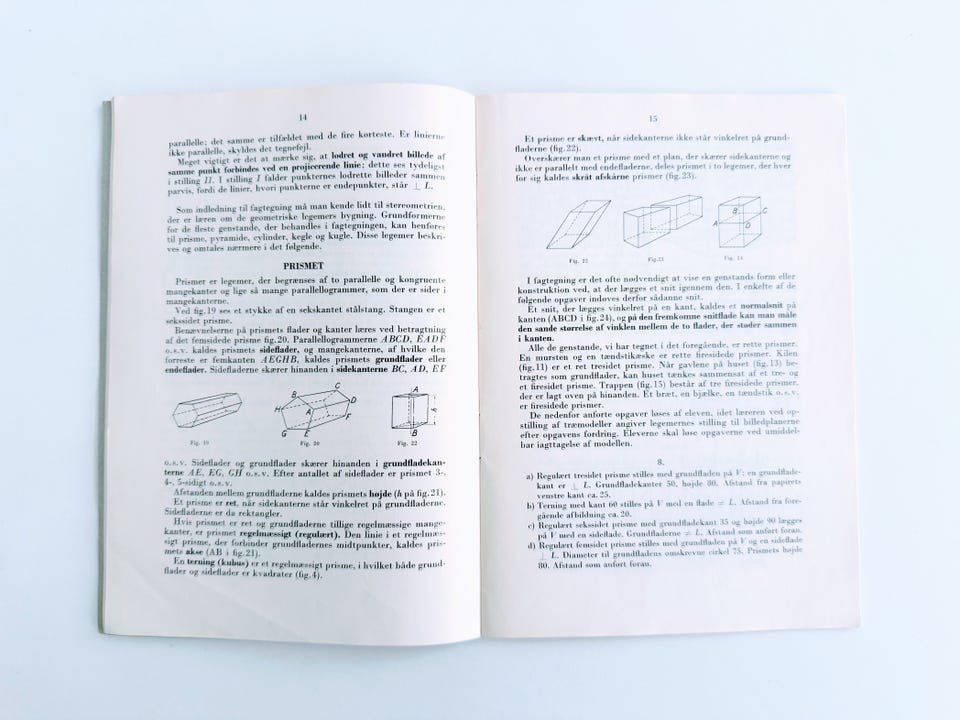 14
parallelle; det samme er tilfældet med de fire korteste. Er linierne
ikke parallelle, skyldes det tegnefejl.
Meget vigtigt er det at mærke sig, at lodret og vandret billede af
samme punkt forbindes ved en projicerende linie; dette ses tydeligst
i stilling II. I stilling I falder punkternes lodrette billeder sammen
parvis, fordi de linier, hvori punkterne er endepunkter, står ⊥ L.
Som indledning til fagtegning må man kende lidt til stereometrien,
der er læren om de geometriske legemers bygning. Grundformerne
for de fleste genstande, der behandles i fagtegningen, kan henføres
til prisme, pyramide, cylinder, kegle og kugle. Disse legemer beskri-
ves og omtales nærmere i det følgende.
PRISMET
Prismer er legemer, der begrænses af to parallelle og kongruente
mangekanter og lige så mange parallelogrammer, som der er sider i
mangekanterne.
Ved fig. 19 ses et stykke af en sekskantet stang. Stangen er et
sekssidet prisme.
Benævnelserne på prismets flader og kanter læres ved betragtning
af det femsidede prisme fig. 20. Parallelogrammerne ABCD, EADF
o.s.v. kaldes prismets sideflader, og mangekanterne, af hvilke den
forreste er femkanten AEGHB, kaldes prismets grundflader eller
endeflader. Sidefladerne skærer hinanden i sidekanterne BC, AD, EF
B
C
D
H
A
F
G
E
A
h
B
Fig. 19
Fig. 20
Fig. 22
o.s.v. Sideflader og grundflader skærer hinanden i grundfladekan-
terne AE, EG, GH o.s.v. Efter antallet af sideflader er prismet 3-,
4-, 5-sidigt o.s.v.
Afstanden mellem grundfladerne kaldes prismets højde (h på fig. 21).
Et prisme er ret, når sidekanterne står vinkelret på grundfladerne.
Sidefladerne er da rektangler.
Hvis prismet er ret og grundfladerne tillige regelmæssige mange-
kanter, er prismet regelmæssigt (regulært). Den linie i et regelmæs-
sigt prisme, der forbinder grundfladernes midtpunkter, kaldes pris-
mets akse (AB i fig. 21).
En terning (kubus) er et regelmæssigt prisme, i hvilket både grund-
flader og sideflader er kvadrater (fig. 4).
15
Et prisme er skævt, når sidekanterne ikke står vinkelret på grund-
fladerne (fig. 22).
Overskærer man et prisme med et plan, der skærer sidekanterne og
ikke er parallelt med endefladerne, deles prismet i to legemer, der hver
for sig kaldes skråt afskårne prismer (fig. 23).
B
C
A
D
Fig. 22
Fig. 23
Fig. 24
I fagtegning er det ofte nødvendigt at vise en genstands form eller
konstruktion ved, at der lægges et snit igennem den. I enkelte af de
følgende opgaver indøves derfor sådanne snit.
Et snit, der lægges vinkelret på en kant, kaldes et normalsnit på
kanten (ABCD i fig. 24), og på den fremkomne snitflade kan man måle
den sande størrelse af vinklen mellem de to flader, der støder sammen
i kanten.
Alle de genstande, vi har tegnet i det foregående, er rette prismer.
En mursten og en tændstikæske er rette firesidede prismer. Kilen
(fig. 11) er et ret tresidet prisme. Når gavlene på huset (fig. 13) be-
tragtes som grundflader, kan huset tænkes sammensat af et tre- og
et firesidet prisme. Trappen (fig. 15) består af tre firesidede prismer,
der er lagt oven på hinanden. Et bræt, en bjælke, en tændstik o.s.v.
er firesidede prismer.
De nedenfor anførte opgaver løses af eleven, idet læreren ved op-
stilling af træmodeller angiver legemernes stilling til billedplanerne
efter opgavens fordring. Eleverne skal løse opgaverne ved umiddel-
bar iagttagelse af modellen.
8.
a) Regulært tresidet prisme stilles med grundfladen på V; en grundflade-
kant er ⊥ L. Grundfladekanter 50, højde 80. Afstand fra papirets
venstre kant ca. 25.
b) Terning med kant 60 stilles på V med en flade = L. Afstand fra fore-
gående afbildning ca. 20.
c) Regulært sekssidet prisme med grundfladekant 35 og højde 90 lægges
på V med en sideflade. Grundfladerne = L. Afstand som anført foran.
d) Regulært femsidet prisme stilles med grundfladen på V og en sideflade
⊥ L. Diameter til grundfladens omskrevne cirkel 75. Prismets højde
80. Afstand som anført foran.